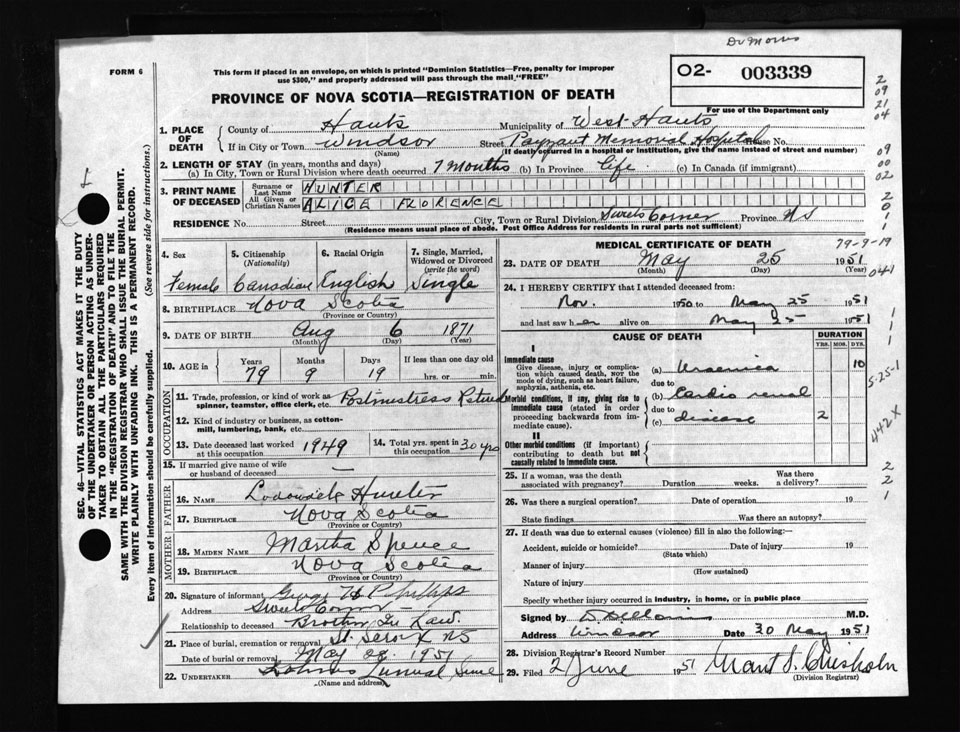 Dr Morris
FORM 6
This form if placed in an envelope, on which is printed "Dominion Statistics—Free, penalty for improper
use $300," and properly addressed will pass through the mail "FREE"
O2- 003339
For use of the Department only
PROVINCE OF NOVA SCOTIA—REGISTRATION OF DEATH
1. PLACE OF DEATH { County of Hants Municipality of West Hants
If in City or Town Windsor Street Payzant Memorial Hospital House No.
(Name) (If death occurred in a hospital or institution, give the name instead of street and number)
2. LENGTH OF STAY (in years, months and days)
(a) In City, Town or Rural Division where death occurred 7 Months (b) In Province life (c) In Canada (if immigrant)
3. PRINT NAME OF DECEASED { Surname or Last Name HUNTER
All Given or Christian Names ALICE FLORENCE
RESIDENCE No. Street City, Town or Rural Division Sweets Corner Province NS
(Residence means usual place of abode. Post Office Address for residents in rural parts not sufficient)
4. Sex 5. Citizenship (Nationality) 6. Racial Origin 7. Single, Married, Widowed or Divorced (write the word)
Female Canadian English Single
8. BIRTHPLACE Nova Scotia
(Province or Country)
9. DATE OF BIRTH Aug 6 1871
(Month) (Day) (Year)
10. AGE in { Years Months Days If less than one day old
79 9 19 hrs. or min.
OCCUPATION
11. Trade, profession, or kind of work as spinner, teamster, office clerk, etc. Postmistress Retired
12. Kind of industry or business, as cotton-mill, lumbering, bank, etc.
13. Date deceased last worked at this occupation 1949 14. Total yrs. spent in this occupation 30 yrs
15. If married give name of wife or husband of deceased —
FATHER
16. NAME Lodowick Hunter
17. BIRTHPLACE Nova Scotia
(Province or Country)
MOTHER
18. MAIDEN NAME Martha Spence
19. BIRTHPLACE Nova Scotia
(Province or Country)
20. Signature of informant George H Phillips
Address Sweets Corner
Relationship to deceased Brother In Law.
21. Place of burial, cremation or removal St. Croix NS
Date of burial or removal May 28. 1951
22. UNDERTAKER
(Name and address)
MEDICAL CERTIFICATE OF DEATH
79-9-19
23. DATE OF DEATH May 25 1951
(Month) (Day) (Year)
24. I HEREBY CERTIFY that I attended deceased from:
Nov. 1950 to May 25 1951
and last saw her alive on May 25 1951
CAUSE OF DEATH DURATION
YRS. MOS. DYS.
I
Immediate cause
Give disease, injury or complication which caused death, NOT the mode of dying, such as heart failure, asphyxia, asthenia, etc.
(a) Uraemica 10
due to
Morbid conditions, if any, giving rise to immediate cause (stated in order proceeding backwards from immediate cause).
(b) Cardio renal
due to
(c) disease 2
II
Other morbid conditions (if important) contributing to death but not causally related to immediate cause.
25. If a woman, was the death associated with pregnancy? Duration weeks. Was there a delivery?
26. Was there a surgical operation? Date of operation 19
State findings Was there an autopsy?
27. If death was due to external causes (violence) fill in also the following:—
Accident, suicide or homicide? Date of injury 19
(State which)
Manner of injury
(How sustained)
Nature of injury
Specify whether injury occurred in industry, in home, or in public place
Signed by M.D.
Address Windsor Date 30 May 1951
28. Division Registrar's Record Number
29. Filed 2 June 1951 Grant S. Chisholm
(Division Registrar)
SEC. 46—VITAL STATISTICS ACT MAKES IT THE DUTY
OF THE UNDERTAKER OR PERSON ACTING AS UNDER-
TAKER TO OBTAIN ALL THE PARTICULARS REQUIRED
IN THE "REGISTRATION OF DEATH" AND TO FILE THE
SAME WITH THE DIVISION REGISTRAR WHO SHALL ISSUE THE BURIAL PERMIT.
WRITE PLAINLY WITH UNFADING INK. THIS IS A PERMANENT RECORD.
Every item of information should be carefully supplied. (See reverse side for instructions.)
2
09
21
04
09
00
02
2
0
1
1
041
1
1
1
5-25-1
442X
2
2
1